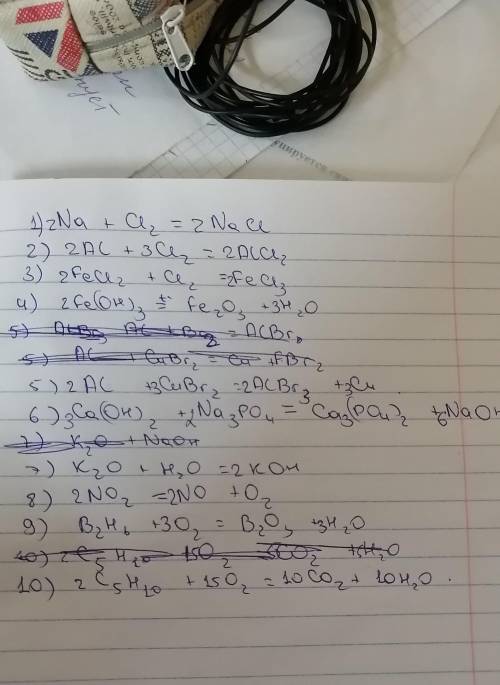 1) 2Na + Cl₂ = 2NaCl
2) 2Al + 3Cl₂ = 2AlCl₂
3) 2FeCl₂ + Cl₂ = 2FeCl₃
4) 2Fe(OH)₃ = Fe₂O₃ + 3H₂O
5) Al + CuBr₂ = Cu + Br₂
5) 2Al + 3CuBr₂ = 2AlBr₃ + 3Cu
6) 3Ca(OH)₂ + 2Na₃PO₄ = Ca₃(PO₄)₂ + 6NaOH
7) K₂O + NaOH
7) K₂O + H₂O = 2KOH
8) 2NO₂ = 2NO + O₂
9) B₂H₆ + 3O₂ = B₂O₃ + 3H₂O
10) 2C₅H₁₀ 15O₂ 5CO₂ + 5H₂O
10) 2C₅H₁₀ + 15O₂ = 10CO₂ + 10H₂O.